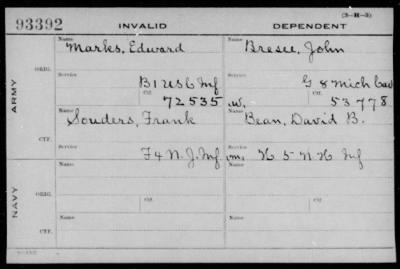 93392 INVALID DEPENDENT (3-H-3)
Name Marks, Edward Name Bresee, John
ARMY
ORIG.
Service B 1 US C Inf Service G 8 Mich Cav
Ctf. 72535 w. Ctf. 53778
Name Souders, Frank Name Bean, David B.
CTF.
Service F 4 N.J. Inf Service m. H 5 N H Inf
Ctf. Ctf.
NAVY
Name Name
ORIG.
Service Service
Ctf. Ctf.
Name Name
CTF.